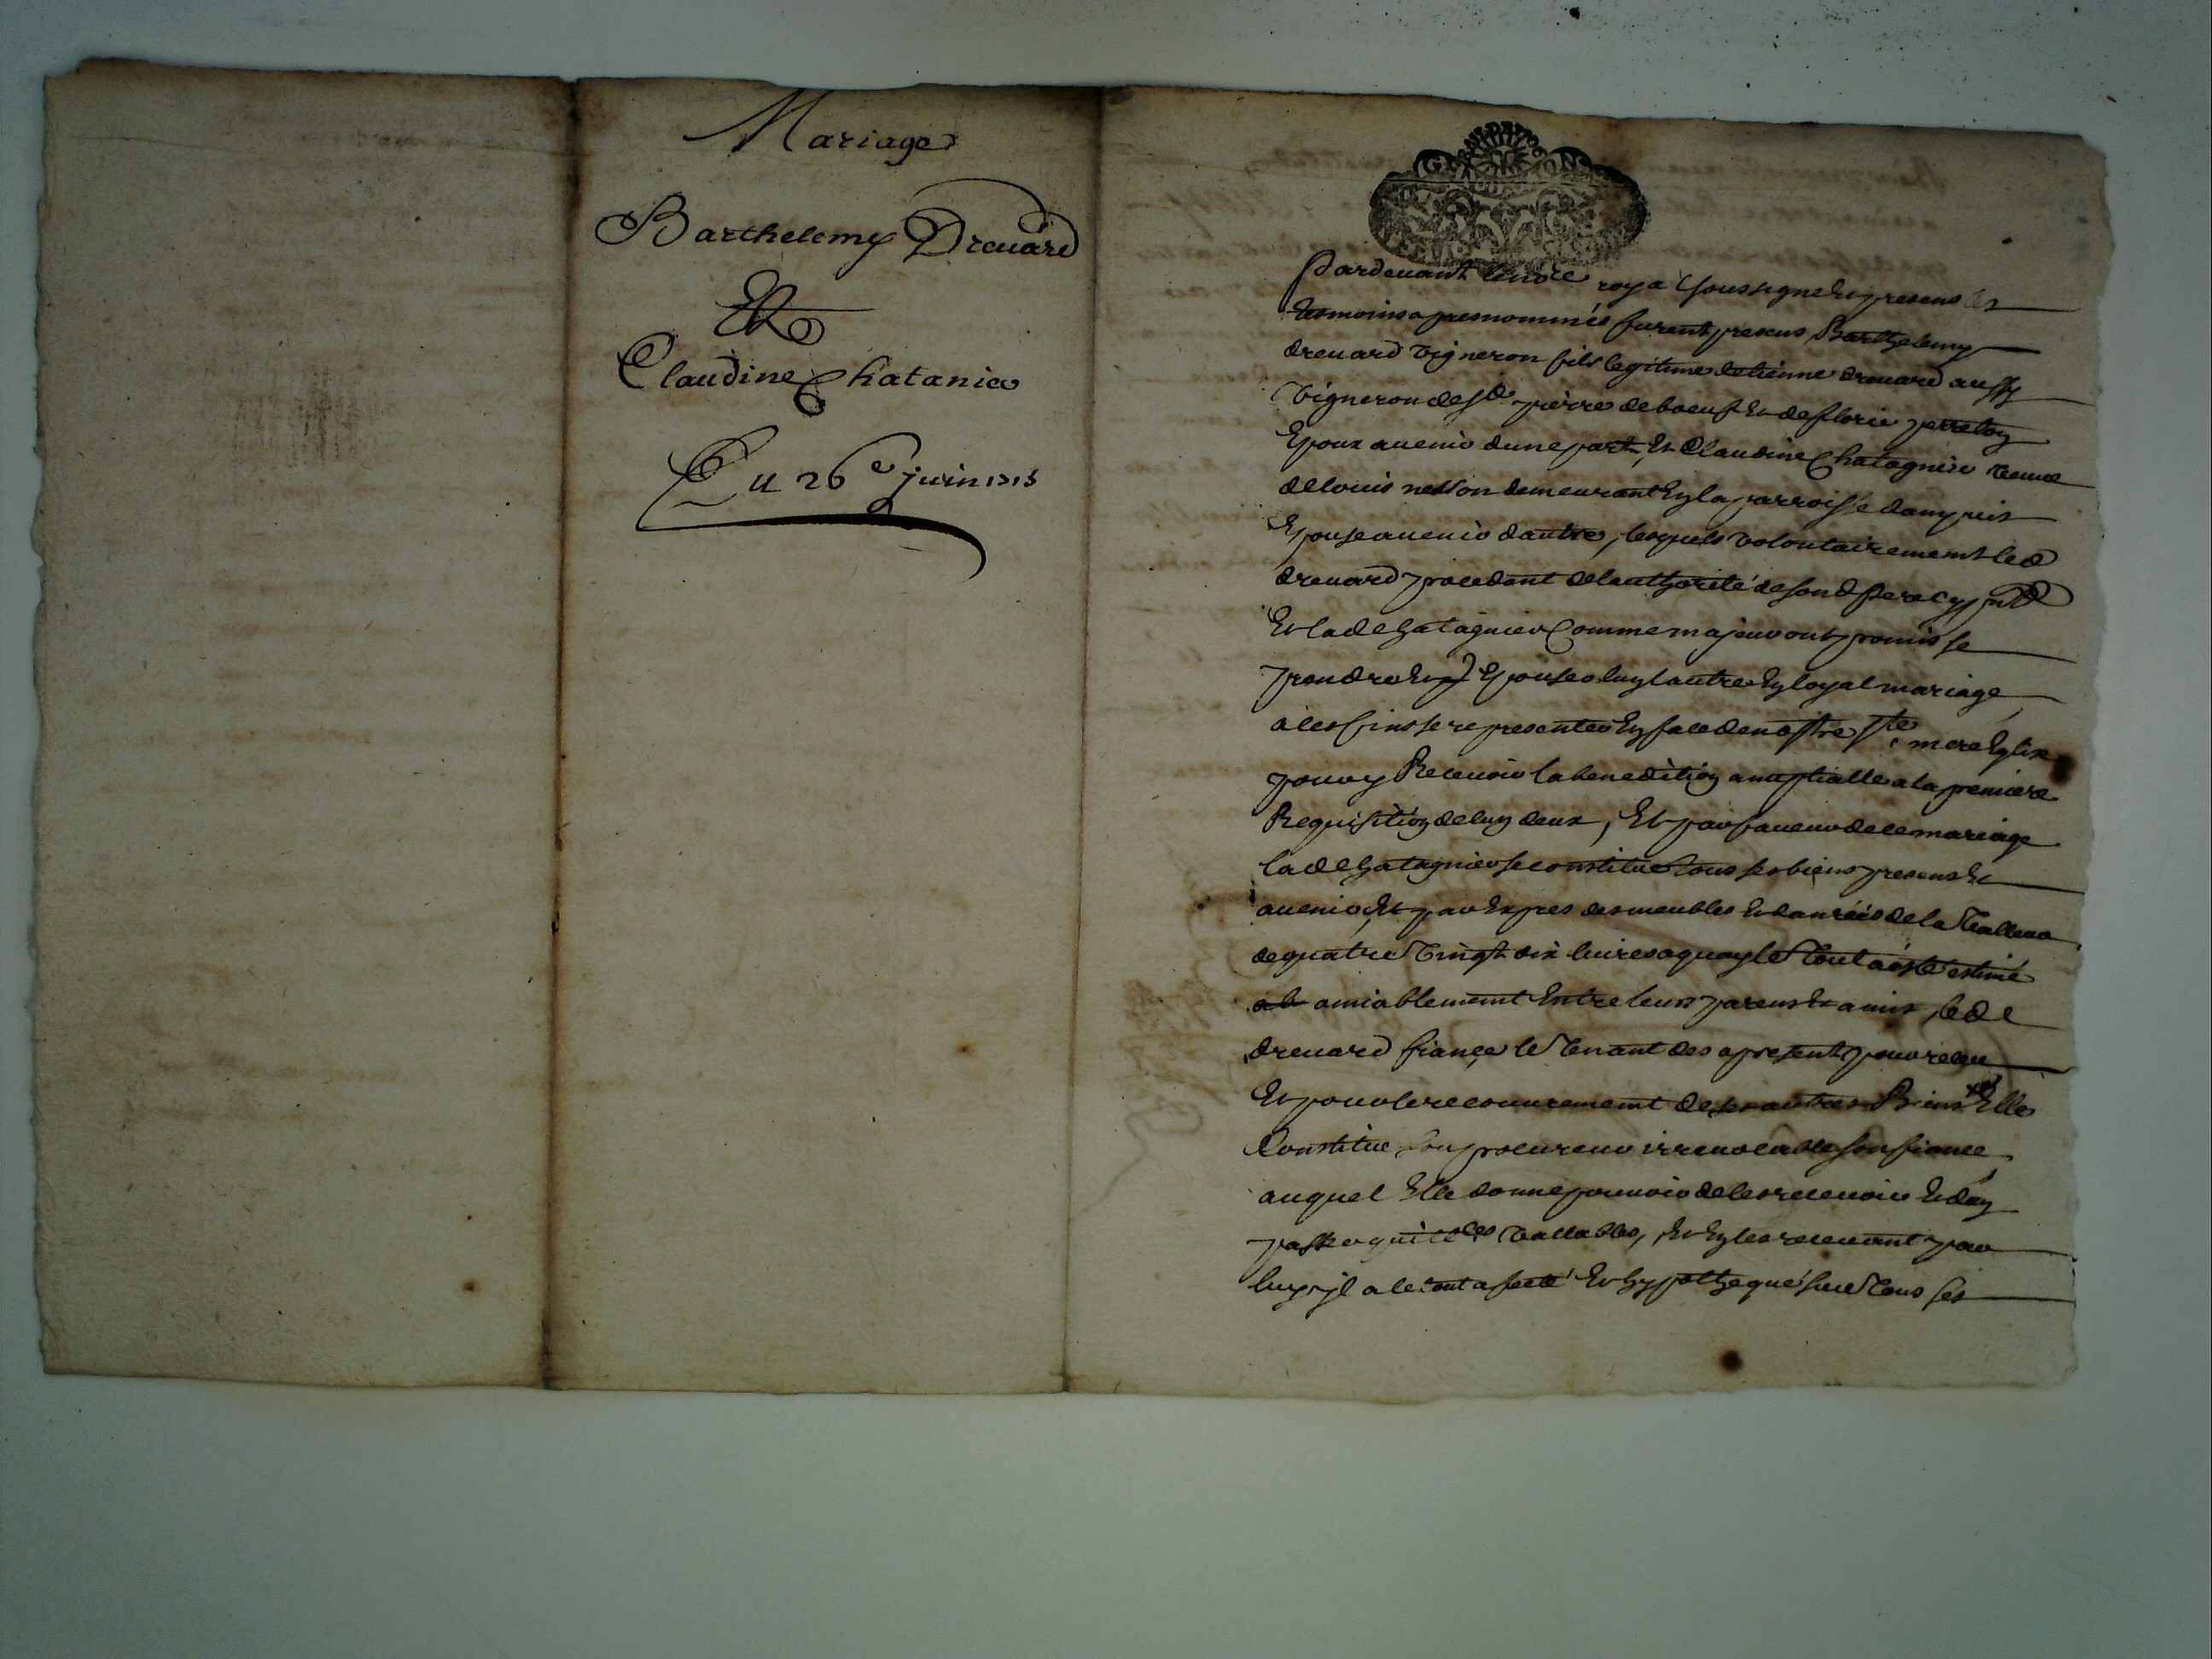 Mariage
Barthelemy Dreuard
Et
Claudine Chatanier
Du 26e juin 1713
GEN DE LYON
Pardeuant le no.re royal soussigne et presens les
tesmoins apres nommés furent presens Barthelemy
dreuard vigneron fils legitime detienne dreuard aussy
vigneron de st pierre de boeuf et de florie perreton
Epoux auenir dune part, Et Claudine Chatagnier veuue
de louis nesson demeurant En la parroisse dampuis
Epouse auenir dautre, lesquels volontairement led
dreuard procedant de lauthorité de sond pere cy pnt
Et lade Chatagnier Comme majeur ont promis se
prendre Et Epouser luy lautre En loyal mariage
a ces fins se representer En face de nostre ste mere Eglise
pour y Receuoir la benedition nuptialle a la premiere
Requisition de luy deux, Et par faueur de ce mariage
lad Chatagnier se constitue tous ses biens presens Et
auenir, Et par Expres des meubles Et danrées de la valleur
de quatre vingt dix liures a quoy le tout a esté estimé
amiablement Entre leurs parens Et amis, led
dreuard fiancé le tenant des a present pour receu
Et pour le recouurement de ses autres Biens Elle
Constitue son procureur irreuocable son fiancé
auquel Elle donne pouuoir de les receuoir Et den
passer quittces vallables, Et En les receuant par
luy il a le tout afecté Et hypothequé sur tous ses